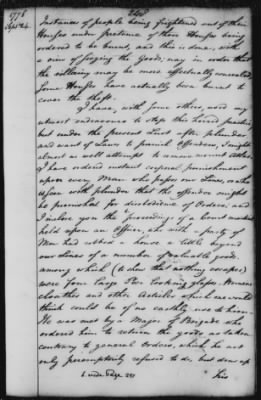 248
1776
Sept 24.
instances of people being frightened out of their
Houses under pretence of those Houses being
ordered to be burnt, and this is done, with
a view of seizing the Goods; nay in order that
the villainy may be more effectually concealed
Some Houses have actually been burnt to
cover the theft.
I have, with some others, used my
utmost endeavours to stop this horrid practice
but under the present lust after plunder
and want of Laws to punish Offenders, I might
almost as well attempt to remove mount Atlas
I have ordered instant corporal punishment
upon every Man who passes our Lines, or is
seen with plunder that the offender might
be punished for disobedience of Orders; and
I inclose you the proceedings of a Court martial
held upon an Officer, who with a party of
Men had robbed a house a little beyond
our Lines of a number of valuable goods;
among which (to shew that nothing escapes)
were Four large Pier Looking Glasses, Womens
cloaths and other Articles which one would
think could be of no earthly use to him.
He was met by a Major of Brigade who
ordered him to return the goods as taken
contrary to general Orders, which he not
only peremptorily refused to do, but drew up
his